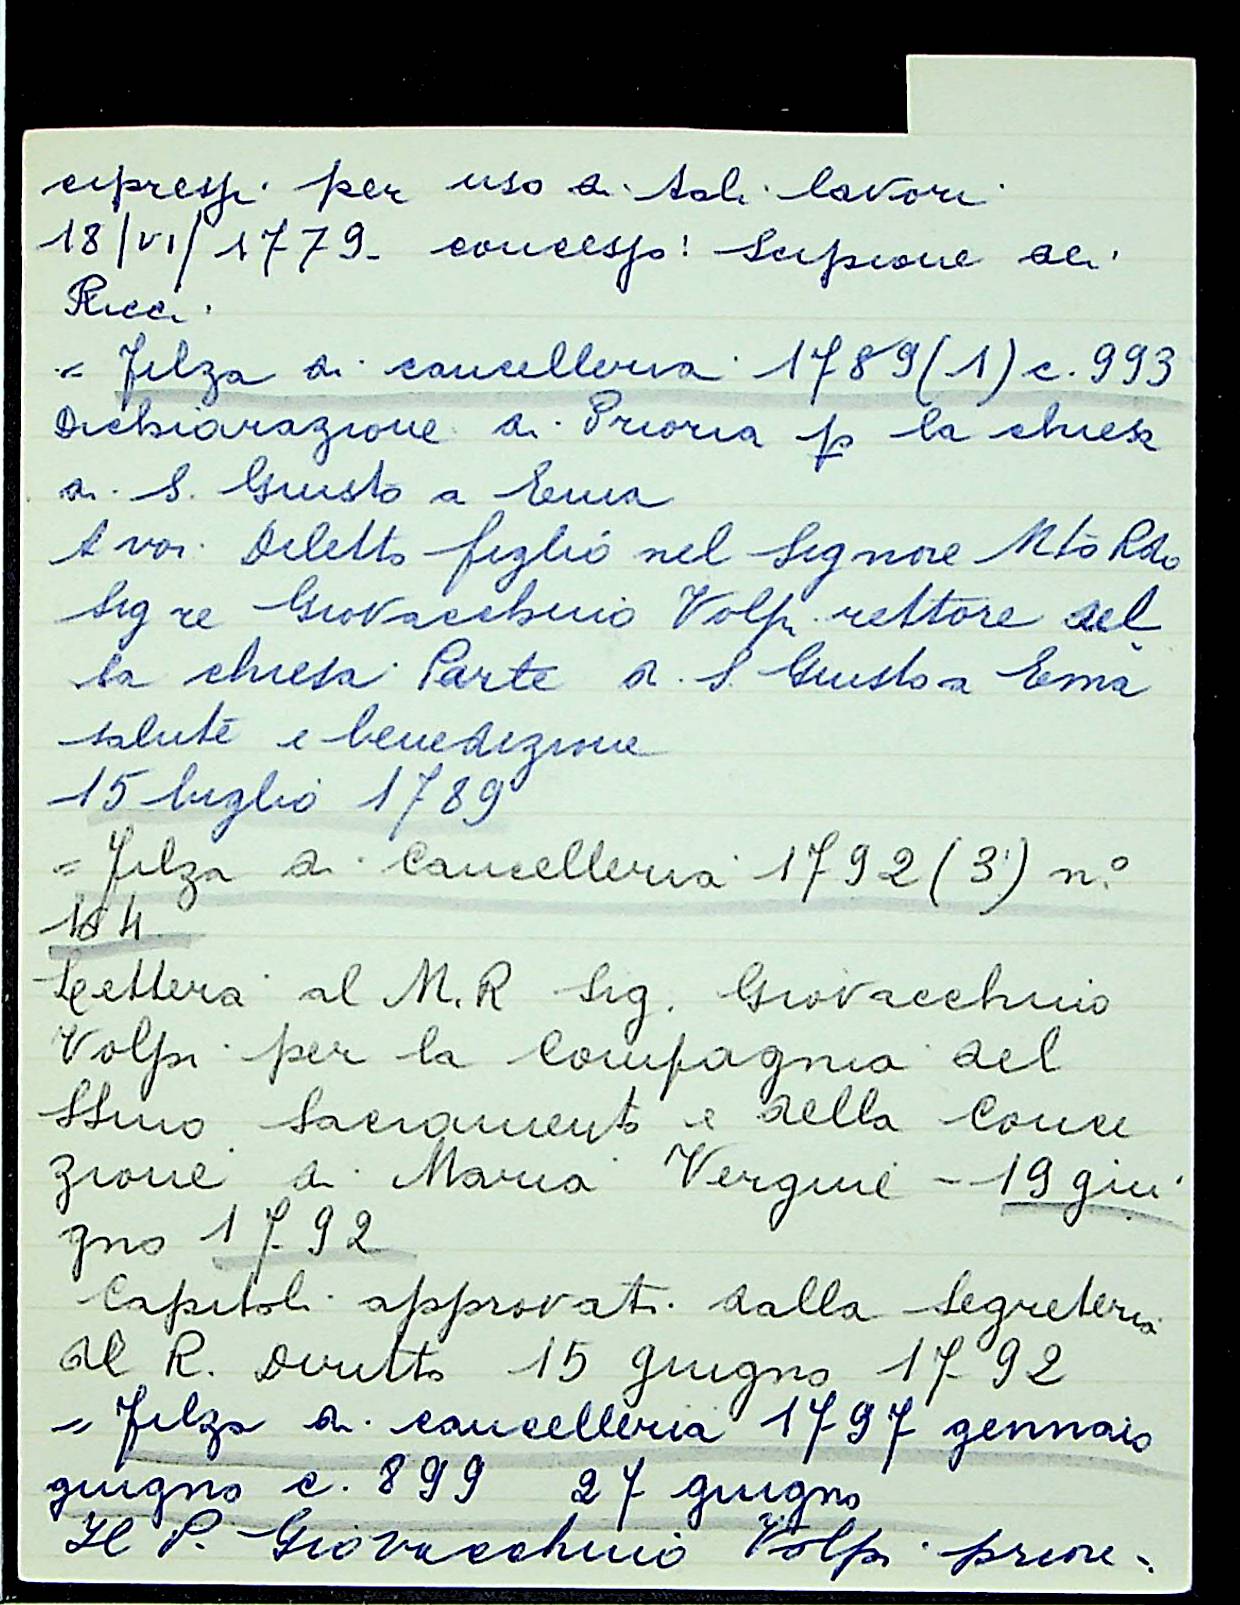 cipressi per uso di tali lavori
18/VI/1779- concesso: Scipione dei
Ricci.
= Filza di cancelleria 1789(1) c. 993
Dichiarazione di Prioria p la chiesa
di S. Giusto a Ema
A voi Diletto figlio nel Signore Mto Rdo
Sigre Giovacchino Volpi rettore del
la chiesa Parte di S. Giusto a Ema
salute e benedizione
15 luglio 1789
= Filza di Cancelleria 1792(3) n.°
Lettera al M.R Sig. Giovacchino
Volpi per la Compagnia del
SSmo Sacramento e della Conce
zione di Maria Vergine - 19 giu
gno 1792
Capitoli approvati dalla Segreteria
del R. Diritto 15 giugno 1792
= Filza di cancelleria 1797 gennaio
giugno c. 899 27 giugno
Il P. Giovacchino Volpi priore